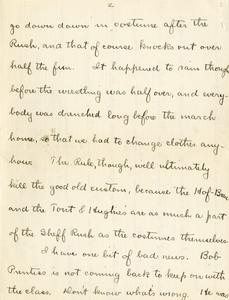 2
go down town in costume after the
Rush, and that of course knocks out over
half the fun. It happened to rain though
before the wrestling was half over, and every-
body was drenched long before the march
home, so that we had to change clothes any-
how. The Rule, though, will ultimately
kill the good old custom, because the Hof-Brau
and the Tont & Hughies are as much a part
of the Sheff Rush as the costumes themselves.
I have one bit of bad news. Bob
Prentiss is not coming back to keep on with
the class. Don't know what's wrong. He was